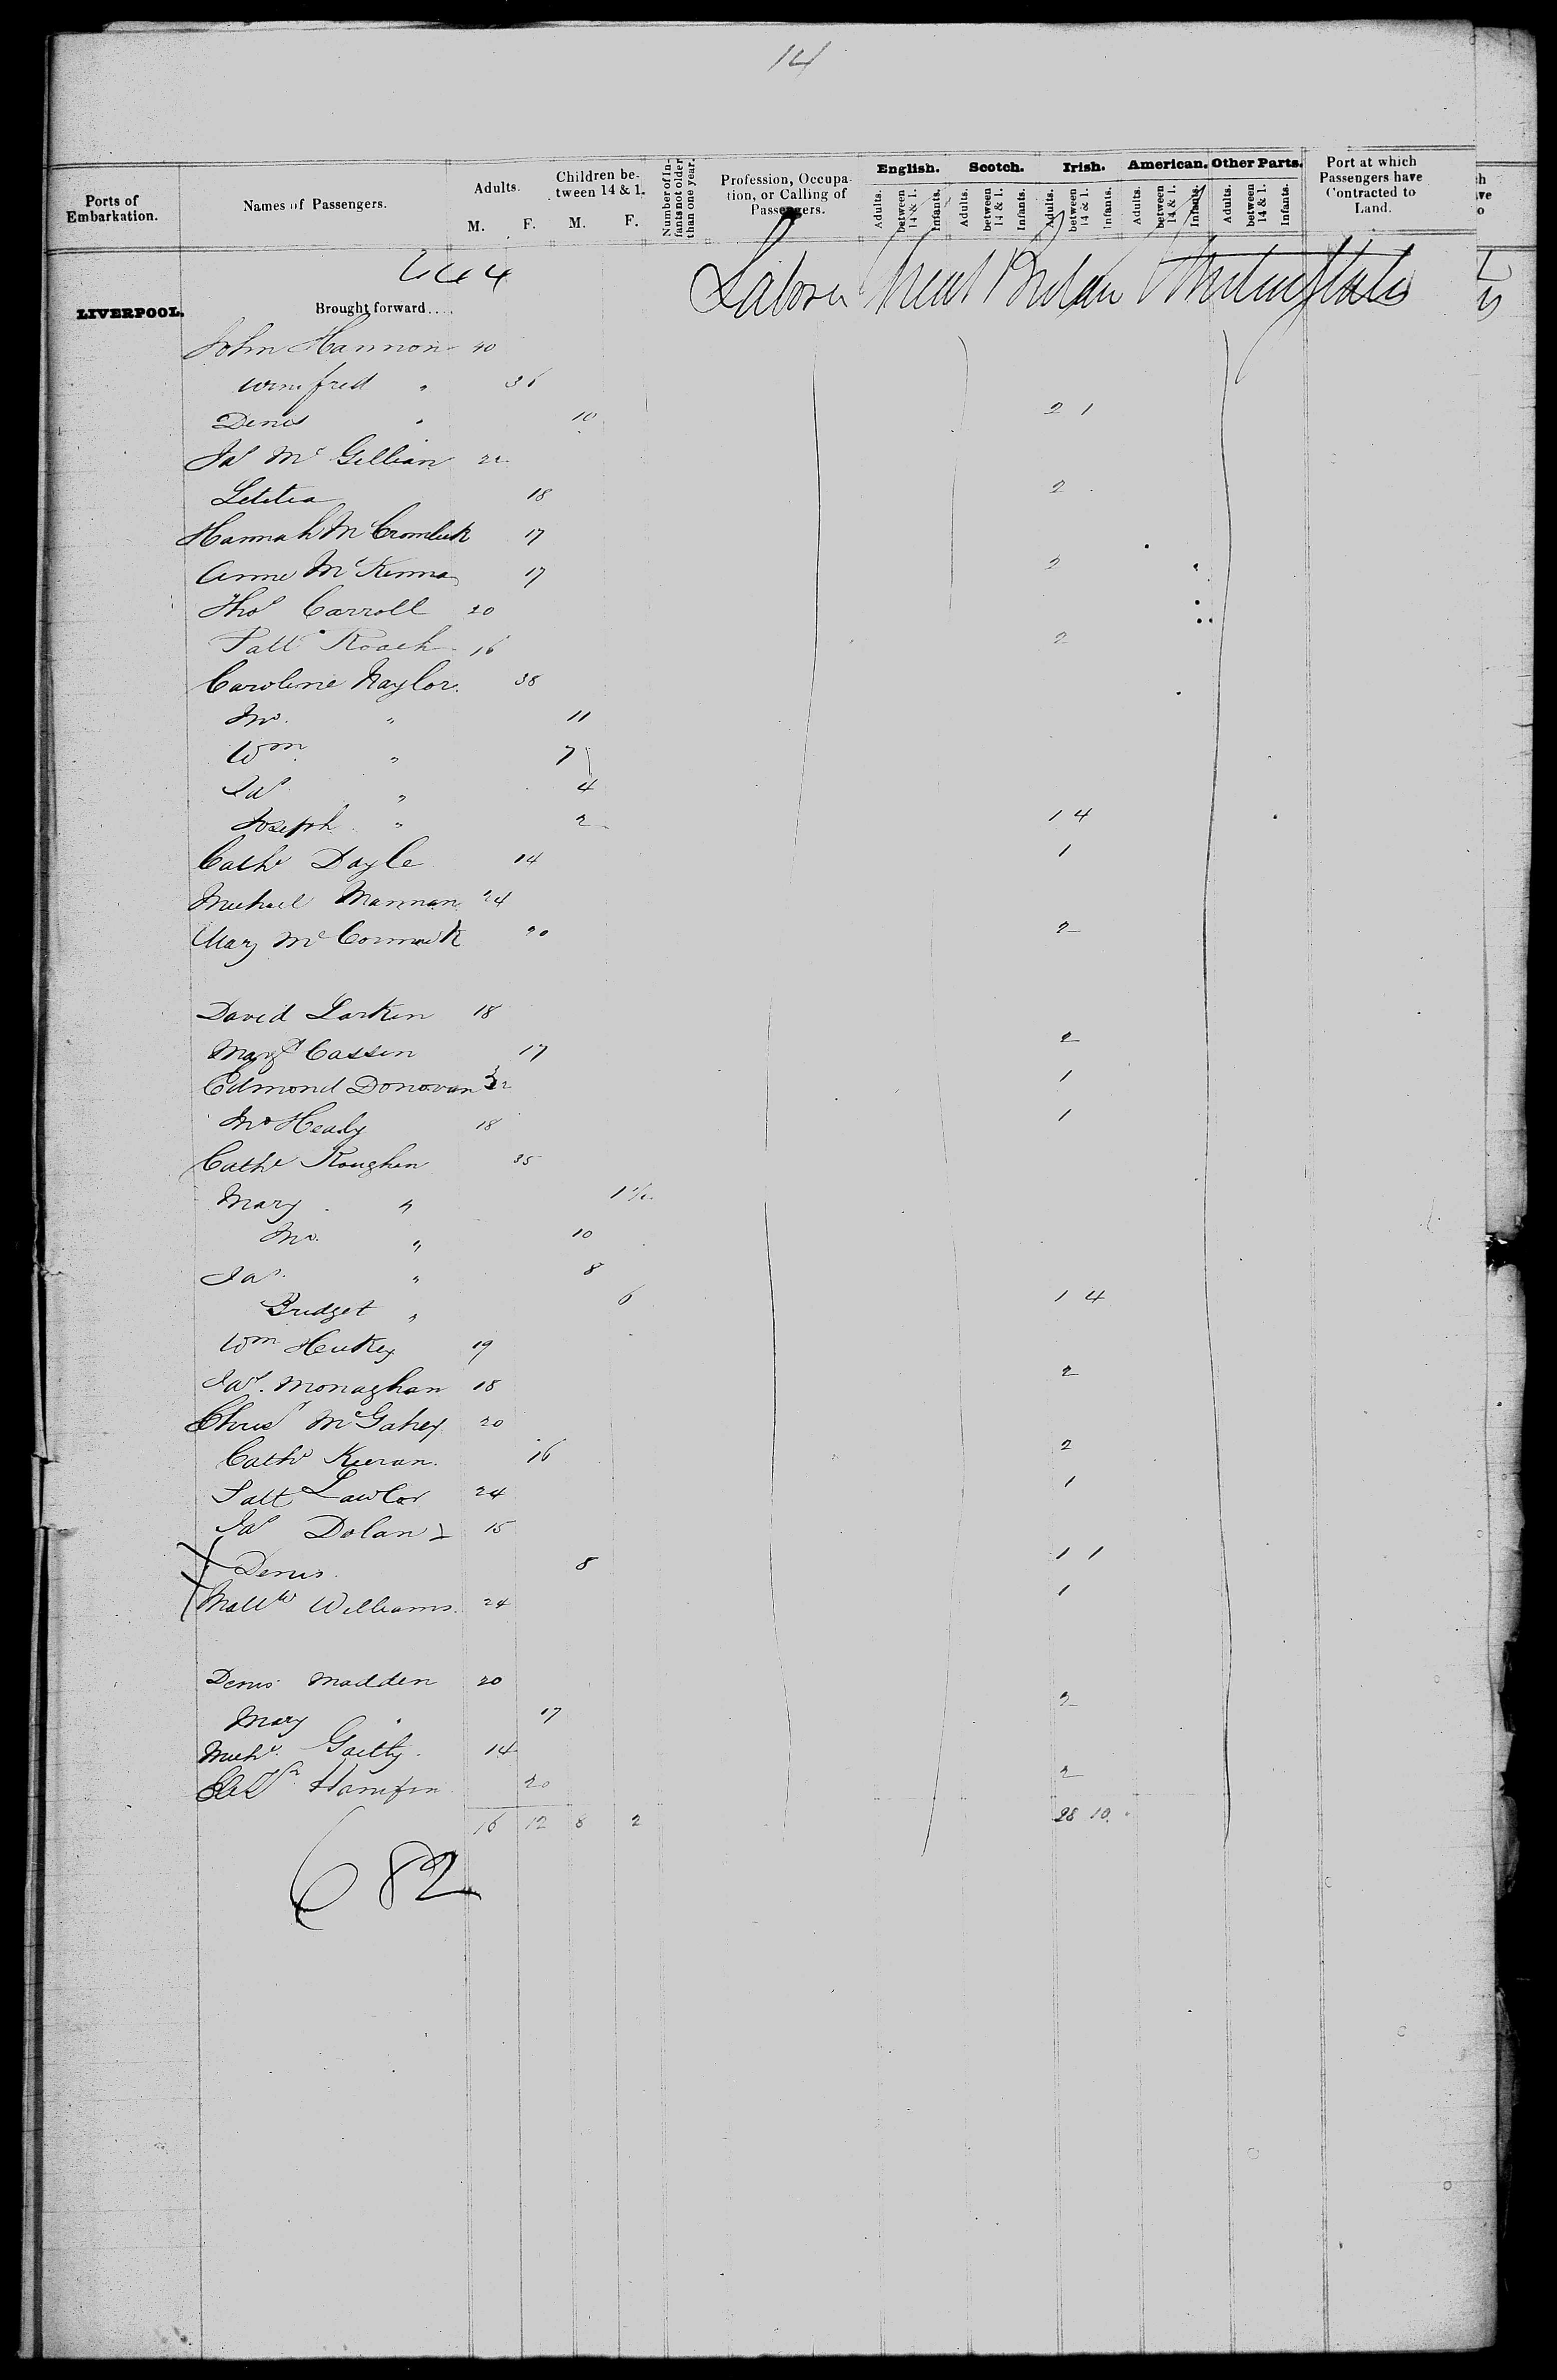 14
Ports of Embarkation. Names of Passengers. Adults. M. F. Children between 14 & 1. M. F. Number of Infants not older than one year. Profession, Occupation, or Calling of Passengers. English. Adults. between 14 & 1. Infants. Scotch. Adults. between 14 & 1. Infants. Irish. Adults. between 14 & 1. Infants. American. Adults. between 14 & 1. Infants. Other Parts. Adults. between 14 & 1. Infants. Port at which Passengers have Contracted to Land.
Laborer Great Britain United States
LIVERPOOL. Brought forward....
John Hannon 40
Winifred " 36
Denis " 10 2 1
Jas Mc Gillian 22
Letitia 18 2
Hannah Mc 17
Anne McKenna 17 2
Thos Carroll 20
Patt Roach 16 2
Caroline Naylor 38
Jno. " 11
Wm " 7
Jas " 4
Joseph " 2 1 4
Cathe Doyle 14 1
Michael Mannan 24
Mary McCormick 20 2
David Larkin 18
Margt Cassin 17 2
Edmond Donovan 32 1
Jno Healy 18 1
Cathe Roughen 35
Mary " 11
Jno. " 10
Jas. " 8
Bridget " 6 1 4
Wm 19
Jas. Monaghan 18 2
Chrisr McGahey 20
Cathe Kieran 16 2
Patt Lawlor 24 1
Jas Dolan 15
Denis 8 1 1
Mattw Williams 24 1
Denis Madden 20
Mary " 17 2
Michl 14
Hanifin 20 2
16 12 8 2 28 10
682